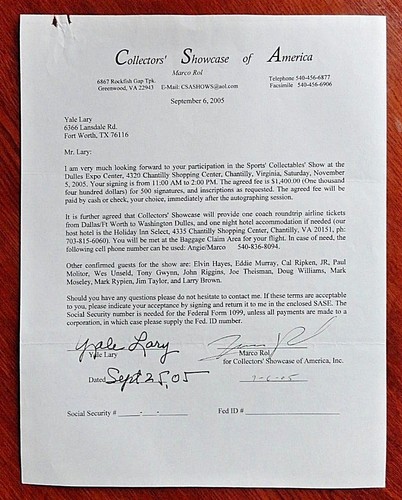 Collectors' Showcase of America
Marco Rol
6867 Rockfish Gap Tpk. Telephone 540-456-6877
Greenwood, VA 22943 E-Mail: CSASHOWS@aol.com Facsimile 540-456-6906
September 6, 2005
Yale Lary
6366 Lansdale Rd.
Fort Worth, TX 76116
Mr. Lary:
I am very much looking forward to your participation in the Sports' Collectables' Show at the
Dulles Expo Center, 4320 Chantilly Shopping Center, Chantilly, Virginia, Saturday, November
5, 2005. Your signing is from 11:00 AM to 2:00 PM. The agreed fee is $1,400.00 (One thousand
four hundred dollars) for 500 signatures, and inscriptions as requested. The agreed fee will be
paid by cash or check, your choice, immediately after the autographing session.
It is further agreed that Collectors' Showcase will provide one coach roundtrip airline tickets
from Dallas/Ft Worth to Washington Dulles, and one night hotel accommodation if needed (our
host hotel is the Holiday Inn Select, 4335 Chantilly Shopping Center, Chantilly, VA 20151, ph:
703-815-6060). You will be met at the Baggage Claim Area for your flight. In case of need, the
following cell phone number can be used: Angie/Marco 540-836-8094.
Other confirmed guests for the show are: Elvin Hayes, Eddie Murray, Cal Ripken, JR, Paul
Molitor, Wes Unseld, Tony Gwynn, John Riggins, Joe Theisman, Doug Williams, Mark
Moseley, Mark Rypien, Jim Taylor, and Larry Brown.
Should you have any questions please do not hesitate to contact me. If these terms are acceptable
to you, please indicate your acceptance by signing and return it to me in the enclosed SASE. The
Social Security number is needed for the Federal Form 1099, unless all payments are made to a
corporation, in which case please supply the Fed. ID number.
Yale Lary
Yale Lary Marco Rol
for Collectors' Showcase of America, Inc.
Dated Sept 25, 05 9-6-05
Social Security # ____-__-____ Fed ID # ____________